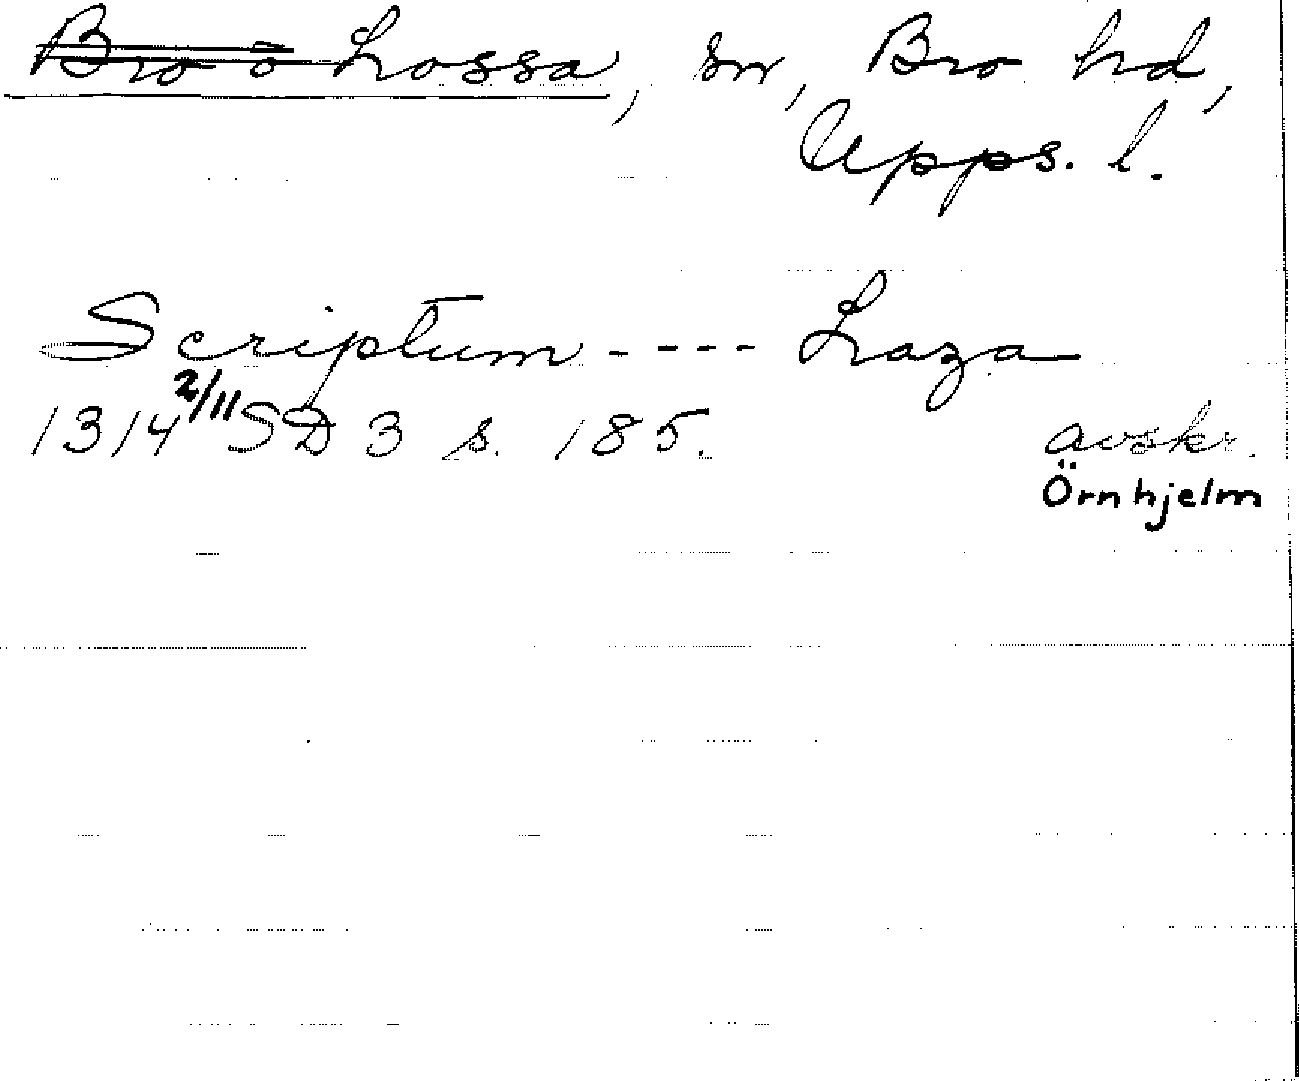 Bro o Lossa, sn, Bro hd,
Upps. l.
Scriptum - - - - Laza
1314 2/11 SD 3 s. 185. avskr.
Örnhjelm